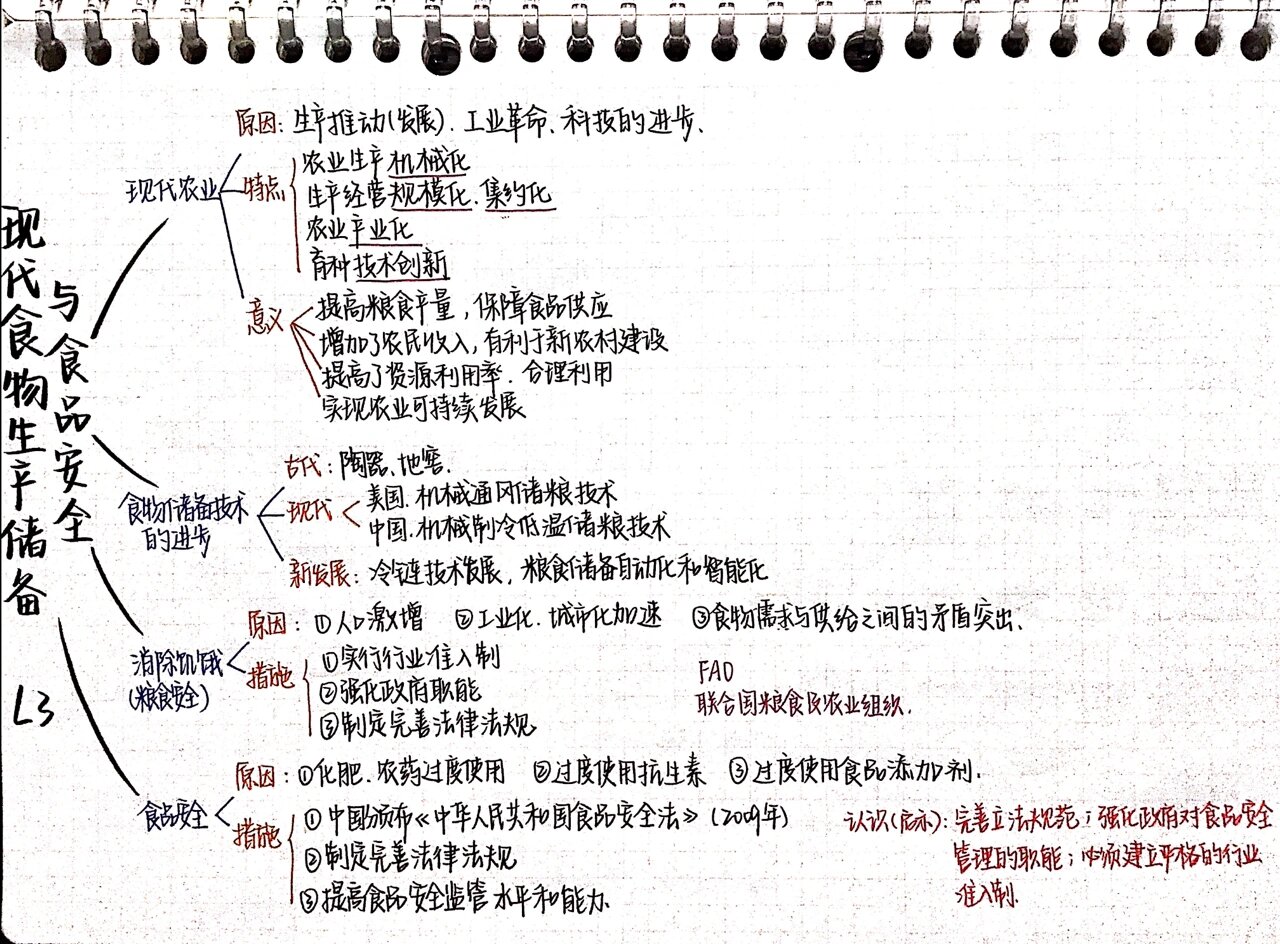 现代食物生产储备
与食品安全
L3
现代农业
原因：生产推动(发展)、工业革命、科技的进步、
特点
农业生产机械化
生产经营规模化、集约化
农业产业化
育种技术创新
意义
提高粮食产量，保障食品供应
增加了农民收入，有利于新农村建设
提高了资源利用率、合理利用
实现农业可持续发展
食物储备技术
的进步
古代：陶器、地窖、
现代
美国、机械通风储粮技术
中国、机械制冷低温储粮技术
新发展：冷链技术发展，粮食储备自动化和智能化
消除饥饿
(粮食安全)
原因：①人口激增 ②工业化、城市化加速 ③食物需求与供给之间的矛盾突出、
措施
①实行行业准入制
②强化政府职能
③制定完善法律法规
FAO
联合国粮食及农业组织、
食品安全
原因：①化肥、农药过度使用 ②过度使用抗生素 ③过度使用食品添加剂、
措施
①中国颁布《中华人民共和国食品安全法》(2009年)
②制定完善法律法规
③提高食品安全监管水平和能力、
认识(启示)：完善立法规范；强化政府对食品安全
管理的职能；必须建立严格的行业
准入制、